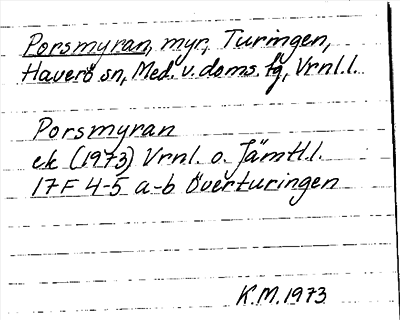 Porsmyran, myr, Turingen,
Haverö sn, Med. v. doms. fg, Vrnl.l.
Porsmyran
ek (1973) Vrnl. o. Jämtl.l.
17F 4-5 a-b Överturingen
K.M. 1973